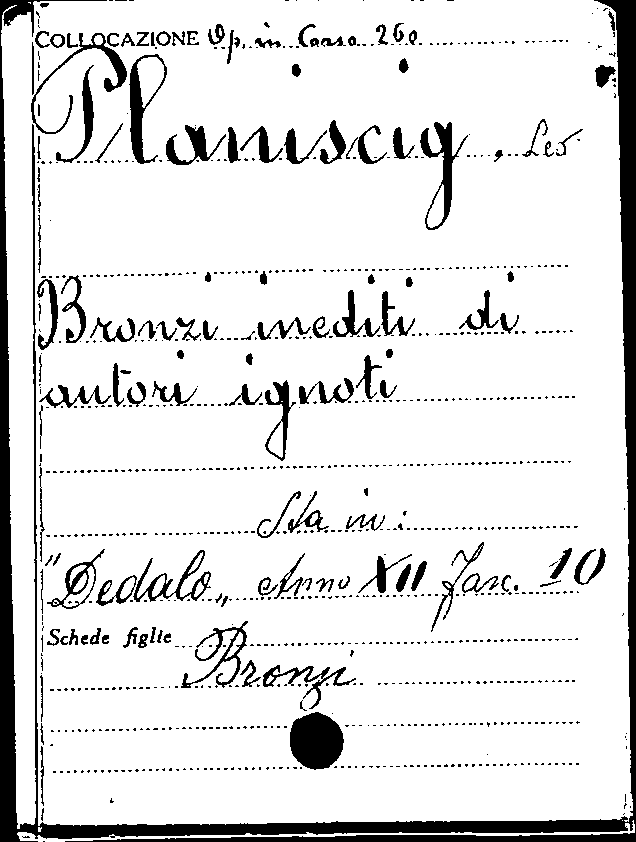 COLLOCAZIONE Op. in Corso 260
Planiscig, Leo
Bronzi inediti di
autori ignoti
Sta in:
"Dedalo" Anno XII Fasc. 10
Schede figlie
Bronzi